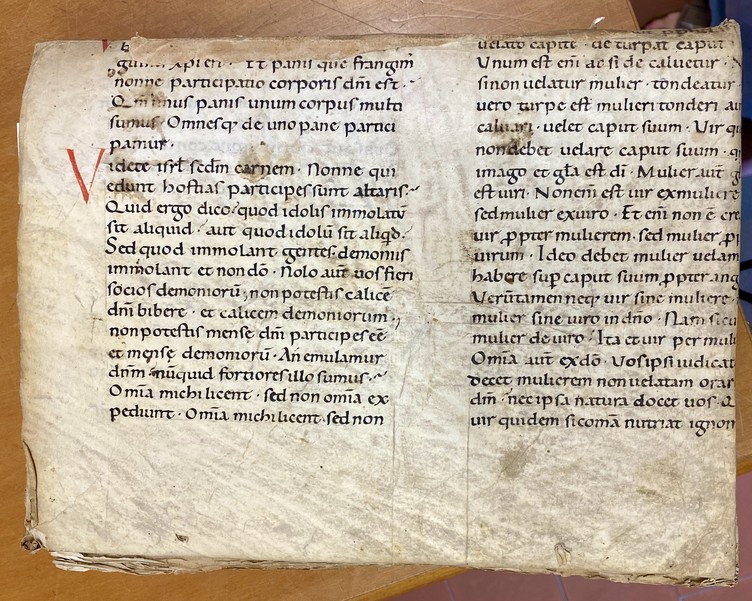 guinis xpi est · Et panis quę frangim
nonne participatio corporis dñi est ·
Qm̃ unus panis unum corpus multi
sumus · Omnesq; de uno pane partici
pamur ·
Videte isrl̃ sedm̃ carnem · Nonne qui
edunt hostias participes sunt altaris ·
Quid ergo dico · quod idolis immolatũ
sit aliquid · aut quod idolũ sit aliq̃d ·
Sed quod immolant gentes · demoniis
immolant et non dõ · Nolo aũt uos fieri
socios demoniorũ ; non potestis calicẽ
dñi bibere · et calicem demoniorum ·
non potestis mensę dñi participes eẽ
et mensę demoniorũ · An emulamur
dñm · nũquid fortiores illo sumus ·
Om̃ia michi licent · sed non om̃ia ex
pediunt · Om̃ia michi licent · sed non
uelato capite · de turpat caput
Unum est eñi ac si de caluetur ·
si non uelatur mulier · tondeatur ·
uero turpe est mulieri tonderi au
caluari · uelet caput suum · Uir qu
non debet uelare caput suum · q
imago et gl̃a est dĩ · Mulier aũt g
est uiri · Non eñi est uir ex muliere
sed mulier ex uiro · Et eñi non ẽ cre
uir ꝓpter mulierem · sed mulier ꝓp
uirum · Ideo debet mulier uelam
habere sup̃ caput suum ꝓpter ang
Verũtamen neq; uir sine muliere ·
mulier sine uiro in dño · Nam sicu
mulier de uiro · Ita et uir per muli
Om̃ia aũt ex dõ · Uos ipsi iudicat
decet mulierem non uelatam orar
dm̃ · nec ipsa natura docet uos · Q
uir quidem si comã nutriat ignom